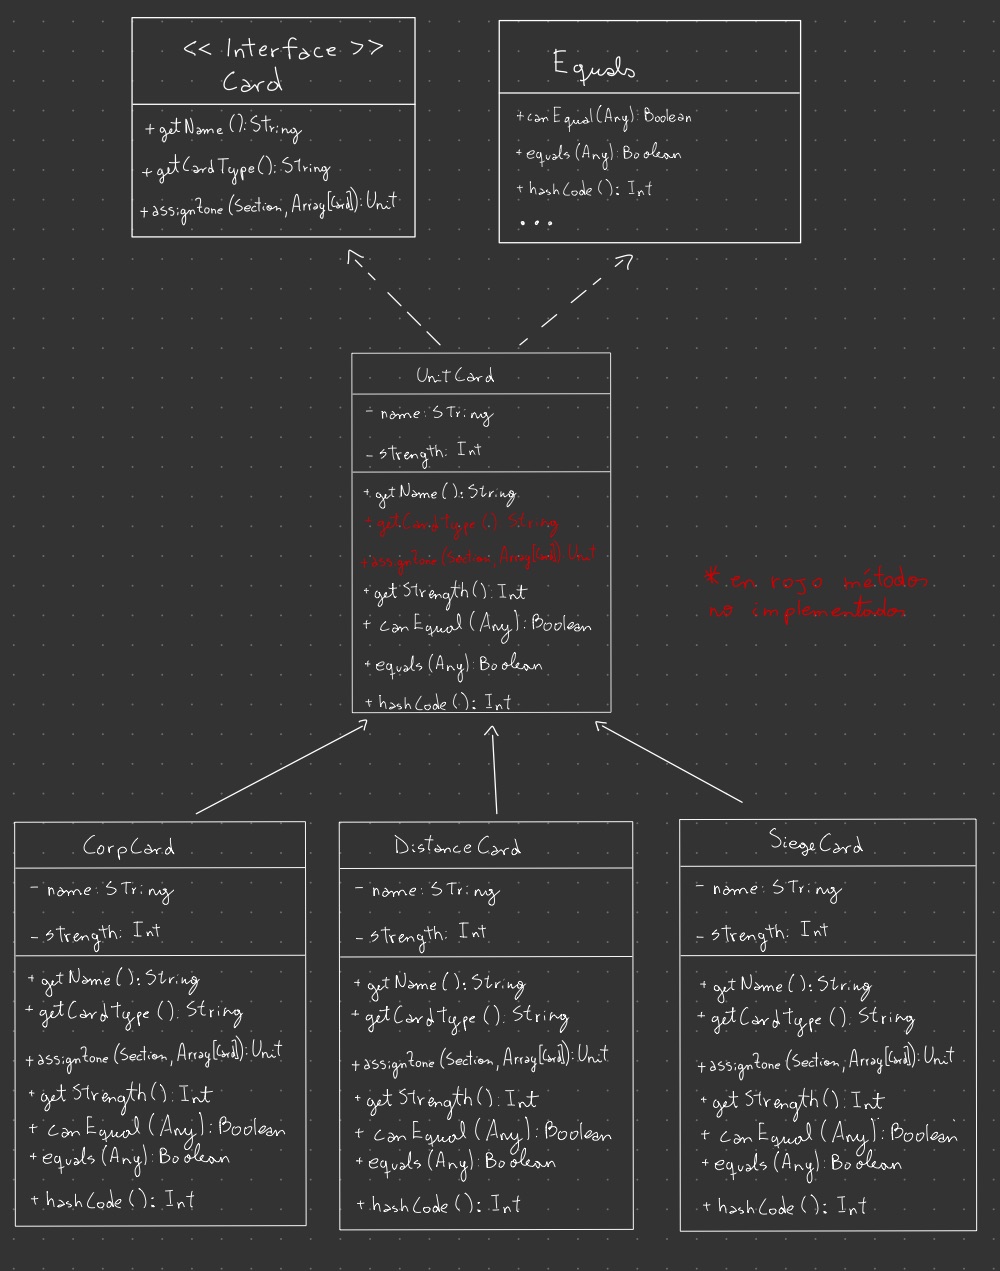 << Interface >>
Card
+ getName(): String
+ getCardType(): String
+ assignZone(Section, Array[Card]): Unit
Equals
+ canEqual(Any): Boolean
+ equals(Any): Boolean
+ hashCode(): Int
...
UnitCard
- name: String
- strength: Int
+ getName(): String
+ getCardType(): String
+ assignZone(Section, Array[Card]): Unit
+ getStrength(): Int
+ canEqual(Any): Boolean
+ equals(Any): Boolean
+ hashCode(): Int
* en rojo métodos
no implementados
CorpCard
- name: String
- strength: Int
+ getName(): String
+ getCardType(): String
+ assignZone(Section, Array[Card]): Unit
+ getStrength(): Int
+ canEqual(Any): Boolean
+ equals(Any): Boolean
+ hashCode(): Int
DistanceCard
- name: String
- strength: Int
+ getName(): String
+ getCardType(): String
+ assignZone(Section, Array[Card]): Unit
+ getStrength(): Int
+ canEqual(Any): Boolean
+ equals(Any): Boolean
+ hashCode(): Int
SiegeCard
- name: String
- strength: Int
+ getName(): String
+ getCardType(): String
+ assignZone(Section, Array[Card]): Unit
+ getStrength(): Int
+ canEqual(Any): Boolean
+ equals(Any): Boolean
+ hashCode(): Int